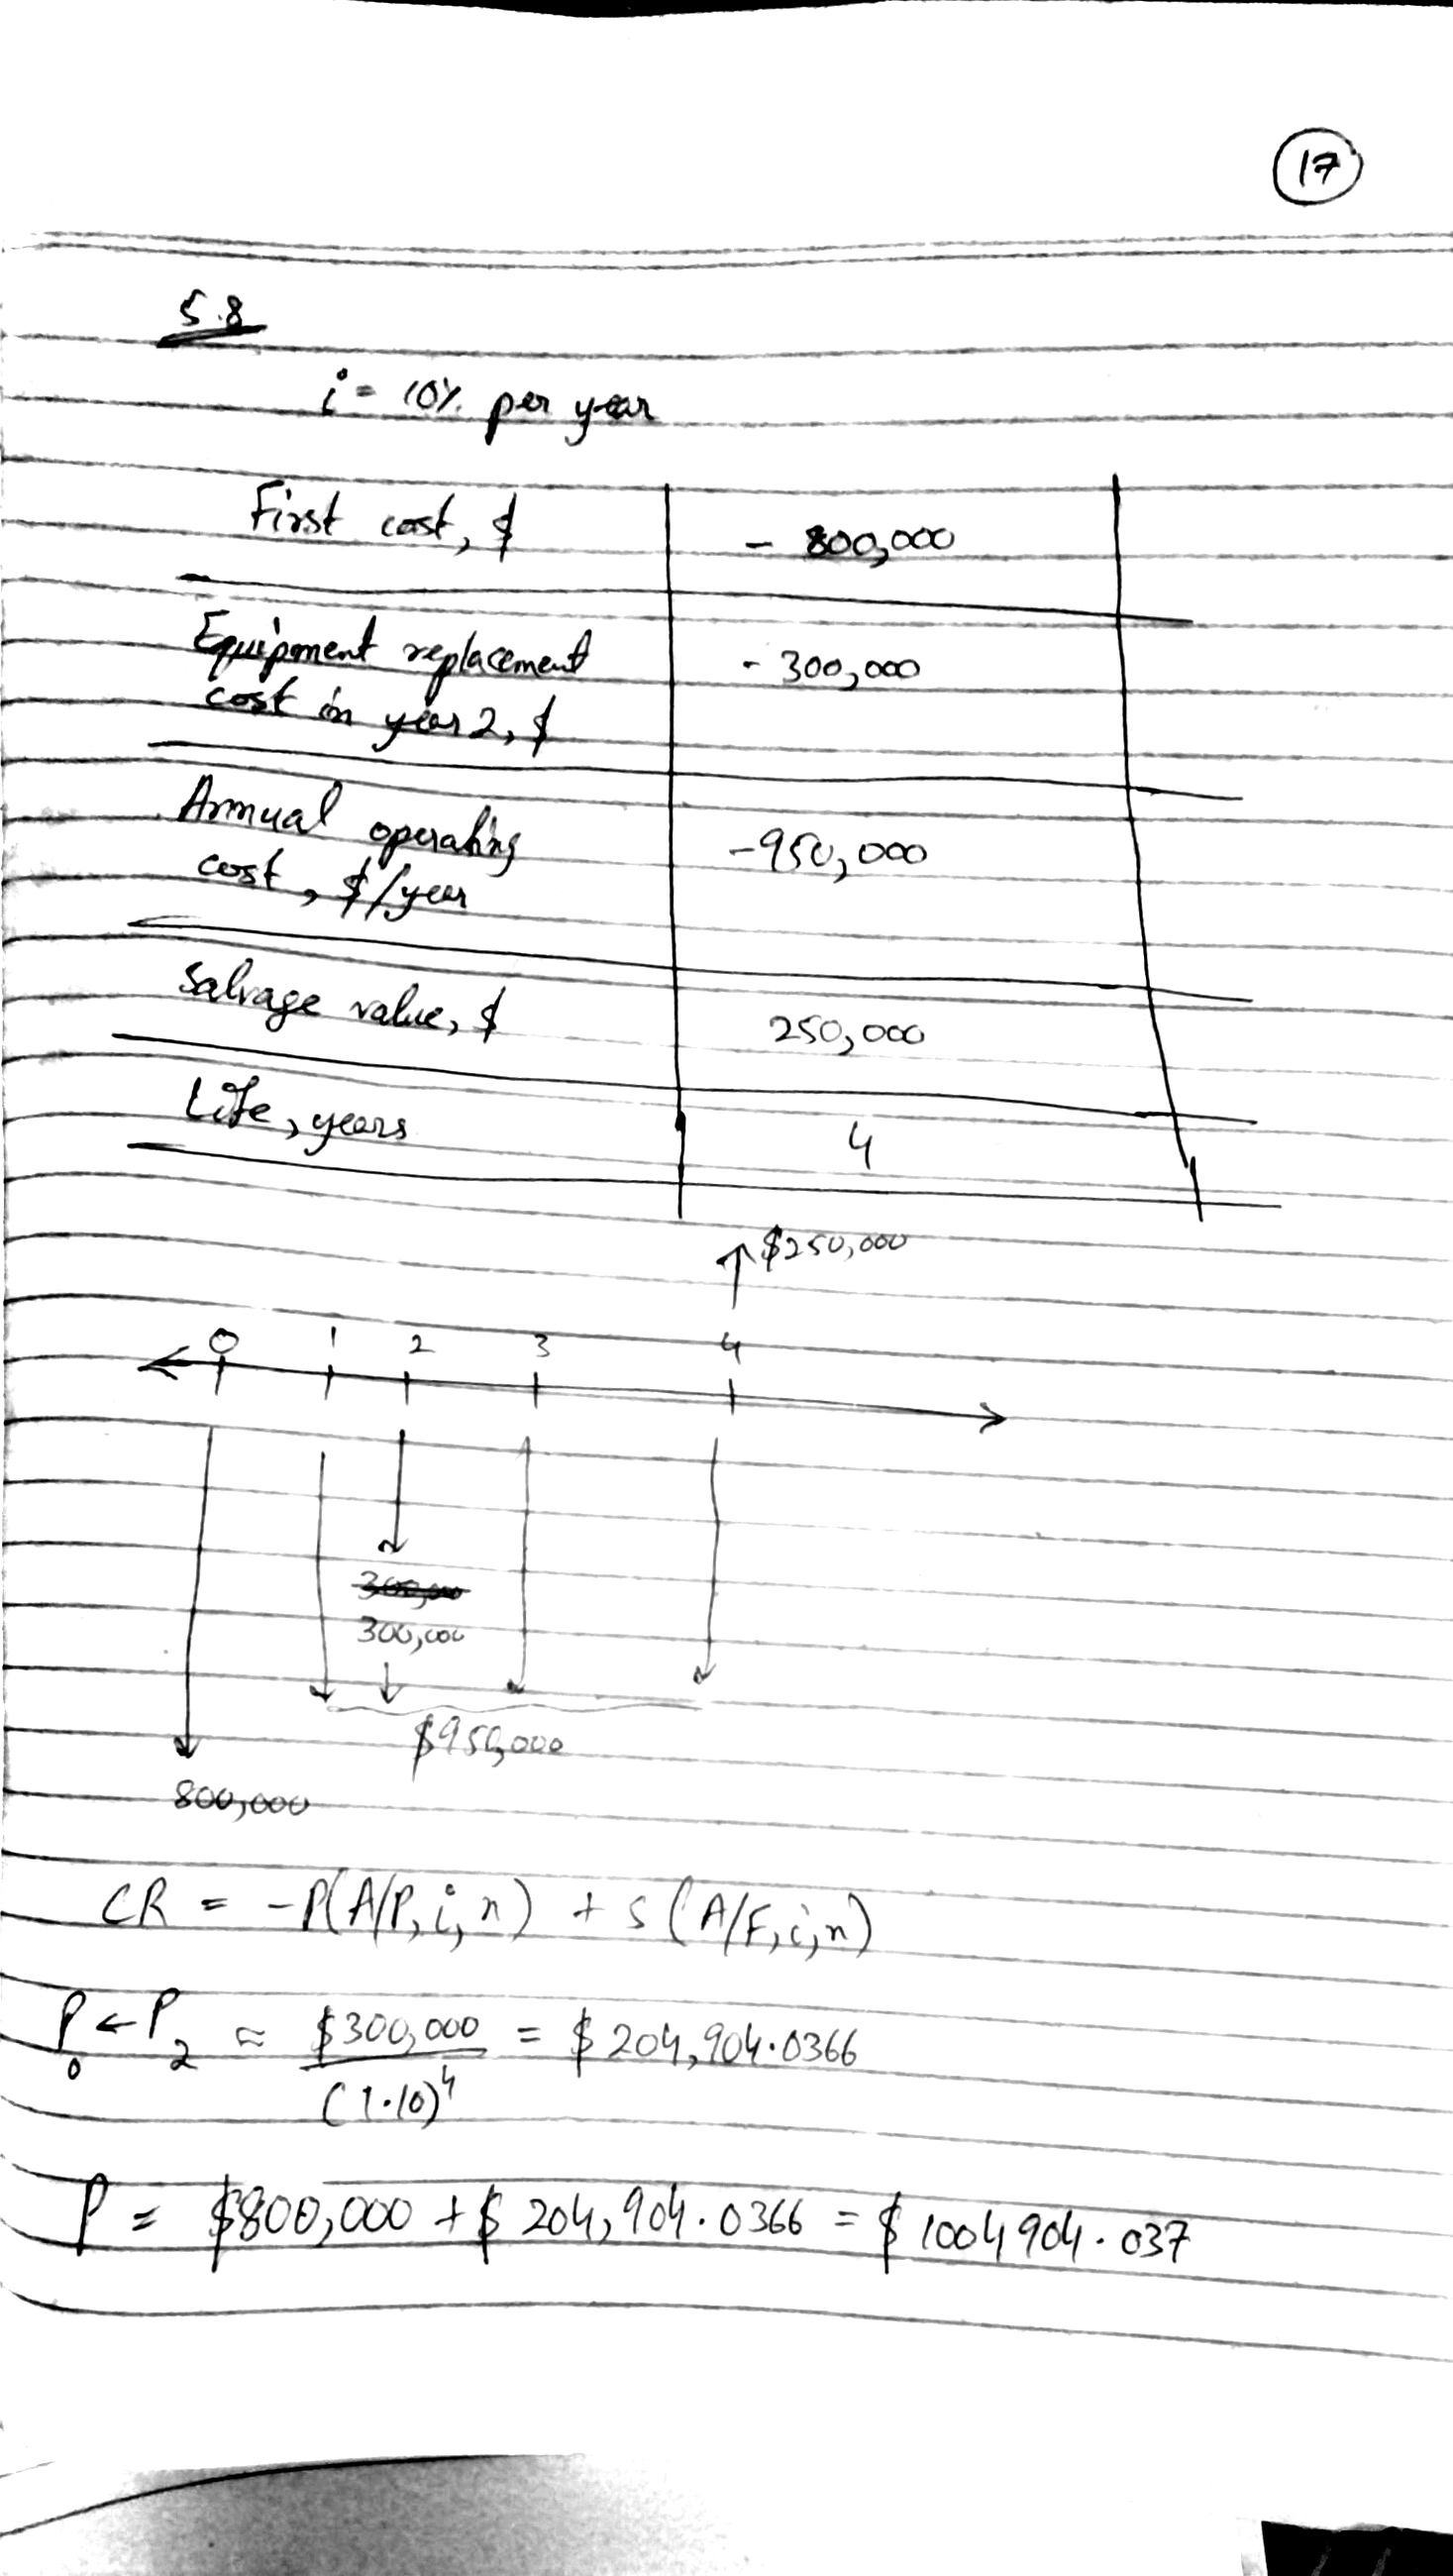 17
5.8
i = 10% per year
First cost, $ - 800,000
Equipment replacement - 300,000
cost in year 2, $
Annual operating -950,000
cost, $/year
Salvage value, $ 250,000
Life, years 4
$250,000
0 1 2 3 4
300,000
300,000
$950,000
800,000
CR = -P(A/P, i, n) + S (A/F, i, n)
P₀ ← P₂ = $300,000 / (1.10)⁴ = $ 204,904.0366
P = $800,000 + $ 204,904.0366 = $ 1004904.037